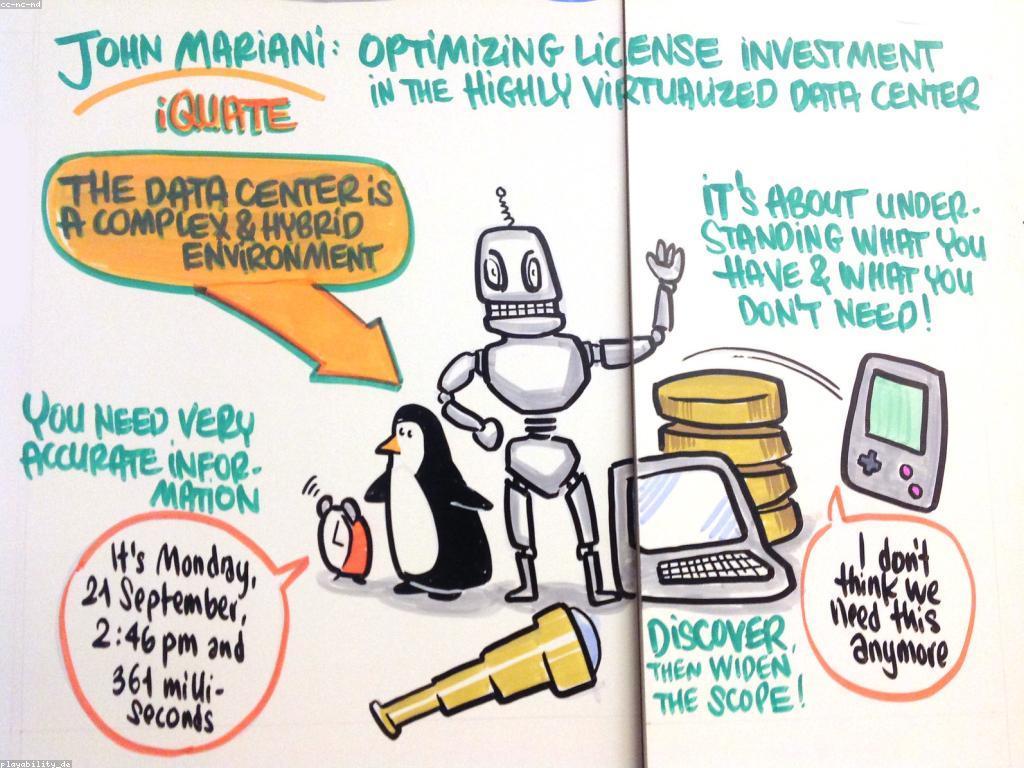 cc-nc-nd
JOHN MARIANI: OPTIMIZING LICENSE INVESTMENT
IN THE HIGHLY VIRTUALIZED DATA CENTER
iQUATE
THE DATA CENTER IS
A COMPLEX & HYBRID
ENVIRONMENT
IT'S ABOUT UNDER-
STANDING WHAT YOU
HAVE & WHAT YOU
DON'T NEED!
YOU NEED VERY
ACCURATE INFOR-
MATION
It's Monday,
21 September,
2:46 pm and
361 milli-
seconds
I don't
think we
need this
anymore
DISCOVER,
THEN WIDEN
THE SCOPE!
playability_de